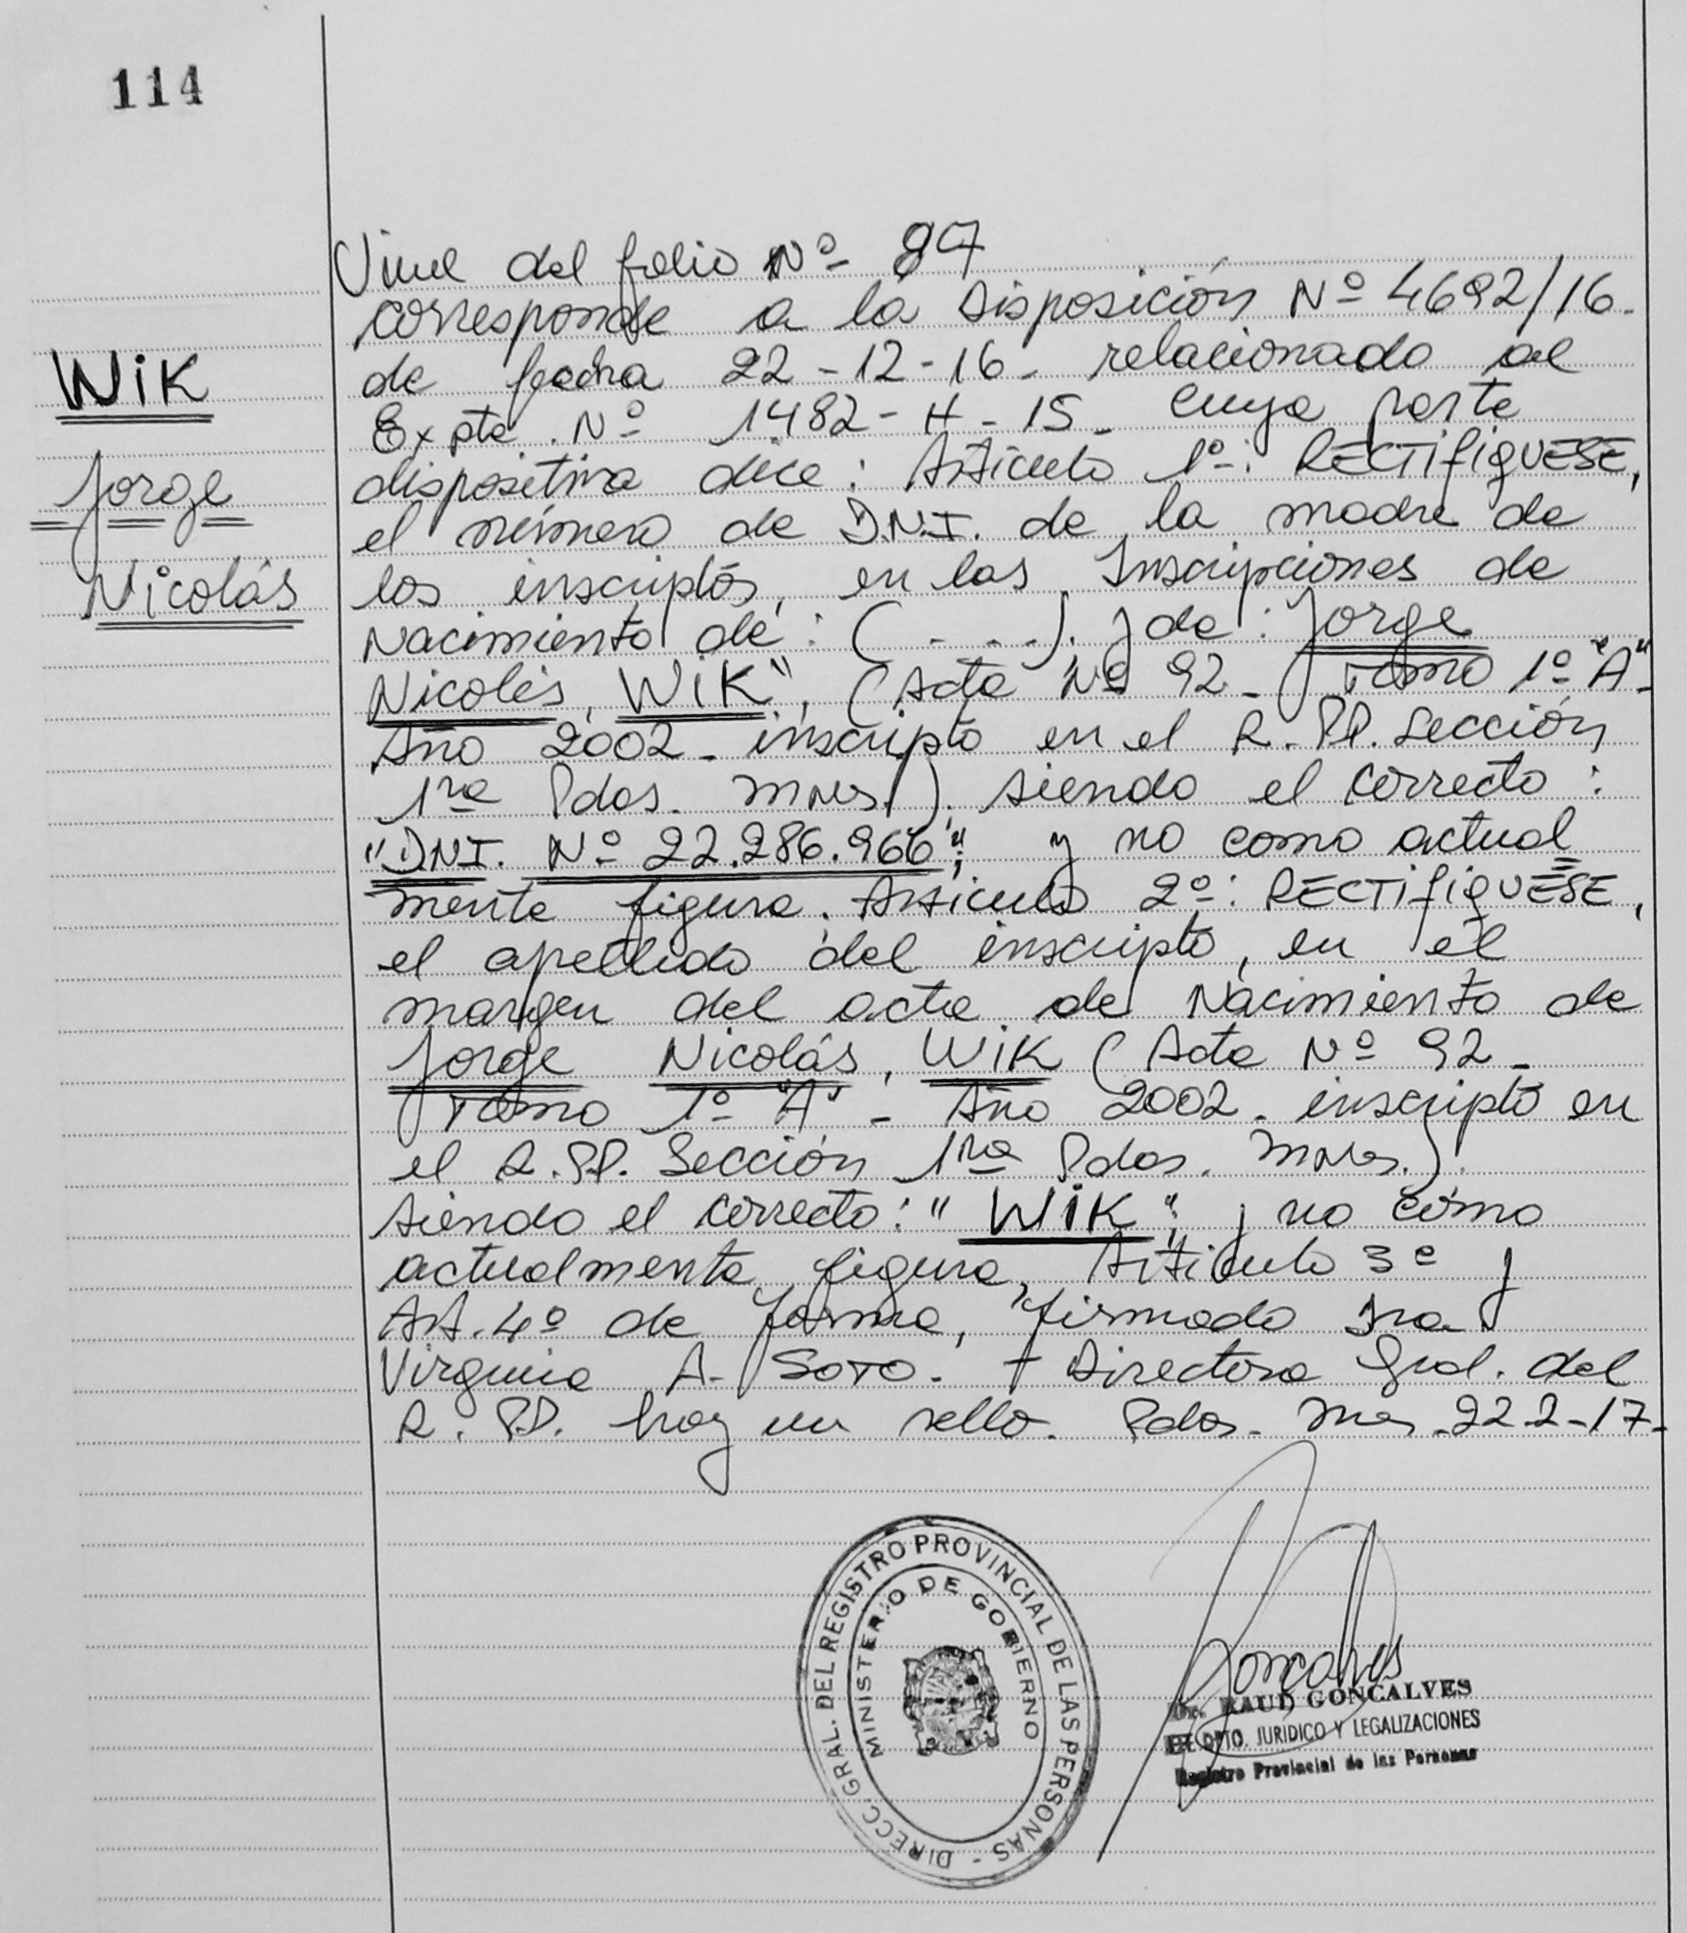 114
WiK
Jorge
Nicolás
Viene del folio Nº 97
corresponde a la Disposición Nº 4692/16.
de fecha 22-12-16. relacionado al
Expte. Nº 1482-H-15. cuya parte
dispositiva dice: Artículo 1º: RECTIFIQUESE,
el número de D.N.I. de la madre de
los inscriptos, en las Inscripciones de
Nacimiento de: (.....). y de: Jorge
Nicolás, WiK", (Acta Nº 92- Tomo 1º "A"-
Año 2002- inscripto en el R.PP. Sección
1ra Pdas. Mnes.). siendo el correcto:
"DNI. Nº 22.286.966"; y no como actual
mente figura. Artículo 2º: RECTIFIQUESE,
el apellido del inscripto, en el
margen del acta de Nacimiento de
Jorge Nicolás, WiK (Acta Nº 92-
Tomo 1º "A" - Año 2002. inscripto en
el R.PP. Sección 1ra Pdas. Mnes.).
siendo el correcto: "WiK"; y no como
actualmente figura, Artículo 3º y
Art. 4º de forma, firmado Sra
Virginia A. SOTO. - Directora Gral. del
R.PP. hay un sello. Pdas. Mnes. 22-2-17-
DIRECC. GRAL. DEL REGISTRO PROVINCIAL DE LAS PERSONAS -
MINISTERIO DE GOBIERNO
Goncalves
Dr. RAUL GONCALVES
DPTO. JURIDICO Y LEGALIZACIONES
Registro Provincial de las Personas